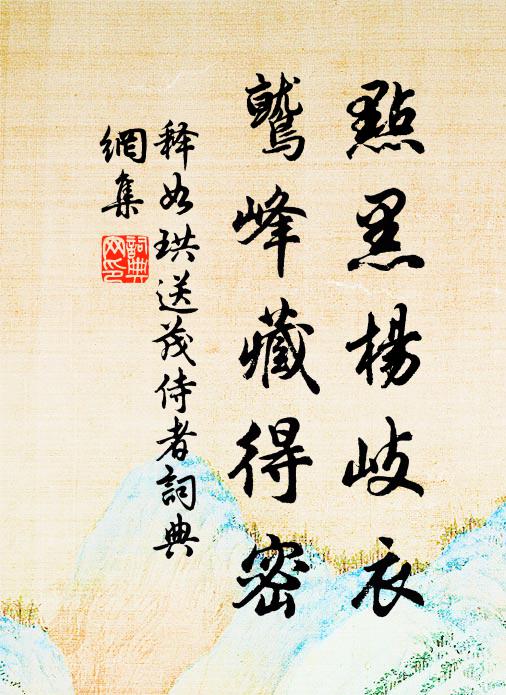 點黑楊岐衣
鷲峰藏得密
释如珙送茂侍者詞典
網集
詞典網印